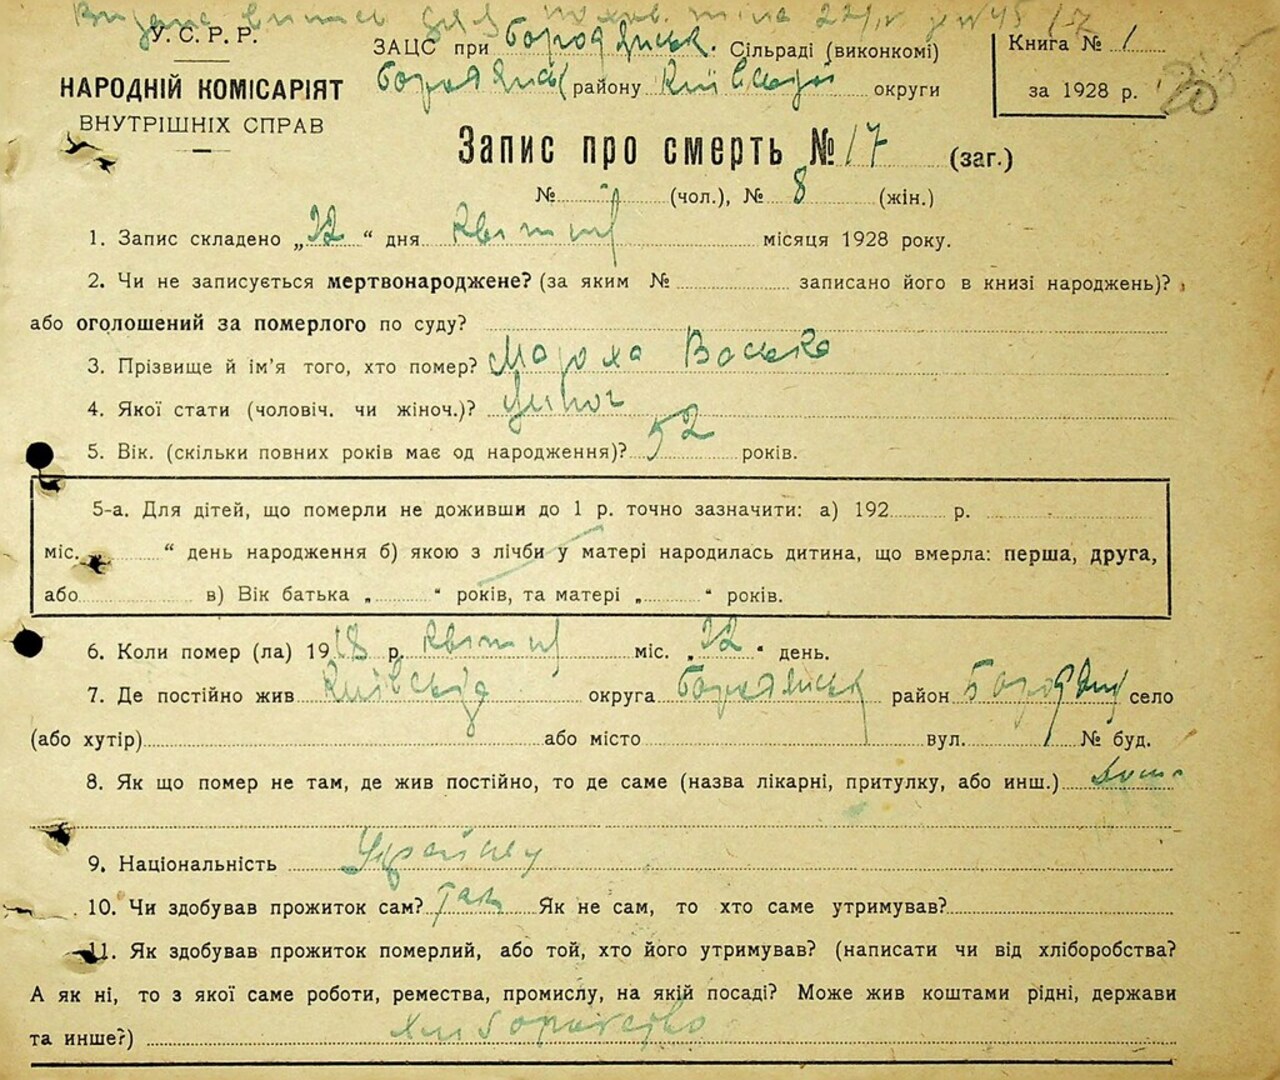 У. С. Р. Р.
НАРОДНІЙ КОМІСАРІЯТ
ВНУТРІШНІХ СПРАВ
ЗАЦС при Бородянськ. Сільраді (виконкомі)
Бородянськ району Київської округи
Книга № 1
за 1928 р.
20
Запис про смерть № 17 (заг.)
№ (чол.), № 8 (жін.)
1. Запис складено „22“ дня квітня місяця 1928 року.
2. Чи не записується мертвонароджене? (за яким № записано його в книзі народжень)?
або оголошений за померлого по суду?
3. Прізвище й ім'я того, хто помер?
4. Якої стати (чоловіч. чи жіноч.)? жіноч
5. Вік. (скільки повних років має од народження)? 52 років.
5-а. Для дітей, що померли не доживши до 1 р. точно зазначити: а) 192 р.
міс. “ день народження б) якою з лічби у матері народилась дитина, що вмерла: перша, друга,
або в) Вік батька „ “ років, та матері „ “ років.
6. Коли помер (ла) 1928 р. квітня міс. „22“ день.
7. Де постійно жив Київська округа Бородянськ район Бородянк село
(або хутір) або місто вул. № буд.
8. Як що помер не там, де жив постійно, то де саме (назва лікарні, притулку, або инш.) дома
9. Національність
10. Чи здобував прожиток сам? так Як не сам, то хто саме утримував?
11. Як здобував прожиток померлий, або той, хто його утримував? (написати чи від хліборобства?
А як ні, то з якої саме роботи, ремества, промислу, на якій посаді? Може жив коштами рідні, держави
та инше?) хліборобство